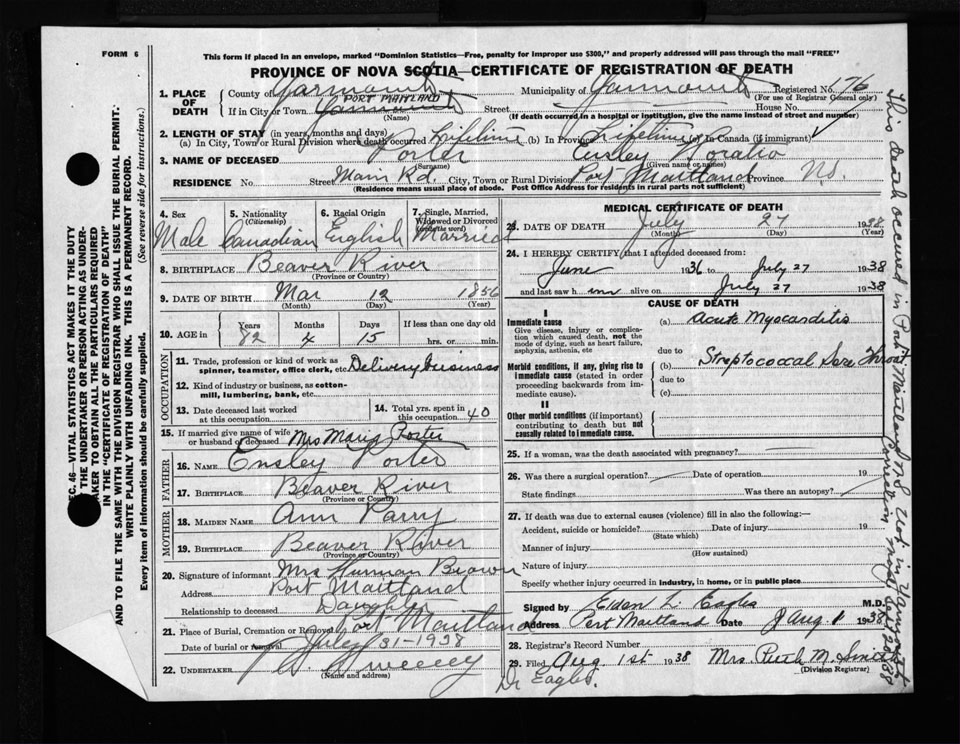 FORM 6
This form if placed in an envelope, marked "Dominion Statistics—Free, penalty for improper use $300," and properly addressed will pass through the mail "FREE"
PROVINCE OF NOVA SCOTIA—CERTIFICATE OF REGISTRATION OF DEATH
1. PLACE OF DEATH
County of Yarmouth Municipality of Yarmouth Registered No. 76
(For use of Registrar General only)
If in City or Town Yarmouth PORT MAITLAND Street House No.
(Name) (If death occurred in a hospital or institution, give the name instead of street and number)
2. LENGTH OF STAY (in years, months and days)
(a) In City, Town or Rural Division where death occurred Lifetime (b) In Province Lifetime (c) In Canada (if immigrant)
3. NAME OF DECEASED Porter Ensley Horatio
(Surname) (Given name or names)
RESIDENCE No. Street Main Rd. City, Town or Rural Division Port Maitland Province N.S.
(Residence means usual place of abode. Post Office Address for residents in rural parts not sufficient)
4. Sex Male
5. Nationality (Citizenship) Canadian
6. Racial Origin English
7. Single, Married, Widowed or Divorced (write the word) Married
8. BIRTHPLACE Beaver River
(Province or Country)
9. DATE OF BIRTH Mar 12 1856
(Month) (Day) (Year)
10. AGE in Years Months Days If less than one day old
82 4 15 hrs. or min.
OCCUPATION
11. Trade, profession or kind of work as spinner, teamster, office clerk, etc. Delivery business
12. Kind of industry or business, as cotton-mill, lumbering, bank, etc.
13. Date deceased last worked at this occupation
14. Total yrs. spent in this occupation 40
15. If married give name of wife or husband of deceased Mrs Maria Porter
FATHER
16. NAME Ensley Porter
17. BIRTHPLACE Beaver River
(Province or Country)
MOTHER
18. MAIDEN NAME Ann Parry
19. BIRTHPLACE Beaver River
(Province or Country)
20. Signature of informant Mrs Hurman Brown
Address Port Maitland
Relationship to deceased Daughter
21. Place of Burial, Cremation or Removal Port Maitland
Date of burial or removal July 31-1938
22. UNDERTAKER Sweeney
(Name and address)
MEDICAL CERTIFICATE OF DEATH
23. DATE OF DEATH July 27 1938
(Month) (Day) (Year)
24. I HEREBY CERTIFY that I attended deceased from:
June 1936 to July 27 1938
and last saw him alive on July 27 1938
CAUSE OF DEATH
I
Immediate cause
Give disease, injury or complication which caused death, not the mode of dying, such as heart failure, asphyxia, asthenia, etc
(a) Acute Myocarditis
due to
Morbid conditions, if any, giving rise to immediate cause (stated in order proceeding backwards from immediate cause).
(b) Streptococcal Sore Throat
due to
(c)
II
Other morbid conditions (if important) contributing to death but not causally related to immediate cause.
25. If a woman, was the death associated with pregnancy?
26. Was there a surgical operation? Date of operation 19
State findings Was there an autopsy?
27. If death was due to external causes (violence) fill in also the following:—
Accident, suicide or homicide? Date of injury 19
(State which)
Manner of injury
(How sustained)
Nature of injury
Specify whether injury occurred in industry, in home, or in public place
Signed by Eldon L Eagles M.D.
Address Port Maitland Date Aug. 1 1938
28. Registrar's Record Number
29. Filed Aug 1st 1938 Mrs. Ruth M. Smith
(Division Registrar)
Dr Eagles.
SEC. 46—VITAL STATISTICS ACT MAKES IT THE DUTY
OF THE UNDERTAKER OR PERSON ACTING AS UNDERTAKER TO OBTAIN ALL THE PARTICULARS REQUIRED
IN THE "CERTIFICATE OF REGISTRATION OF DEATH"
AND TO FILE THE SAME WITH THE DIVISION REGISTRAR WHO SHALL ISSUE THE BURIAL PERMIT.
WRITE PLAINLY WITH UNFADING INK. THIS IS A PERMANENT RECORD.
Every item of information should be carefully supplied. (See reverse side for instructions.)
This death occurred in Port Maitland N.S. not in Yarmouth
Correction made